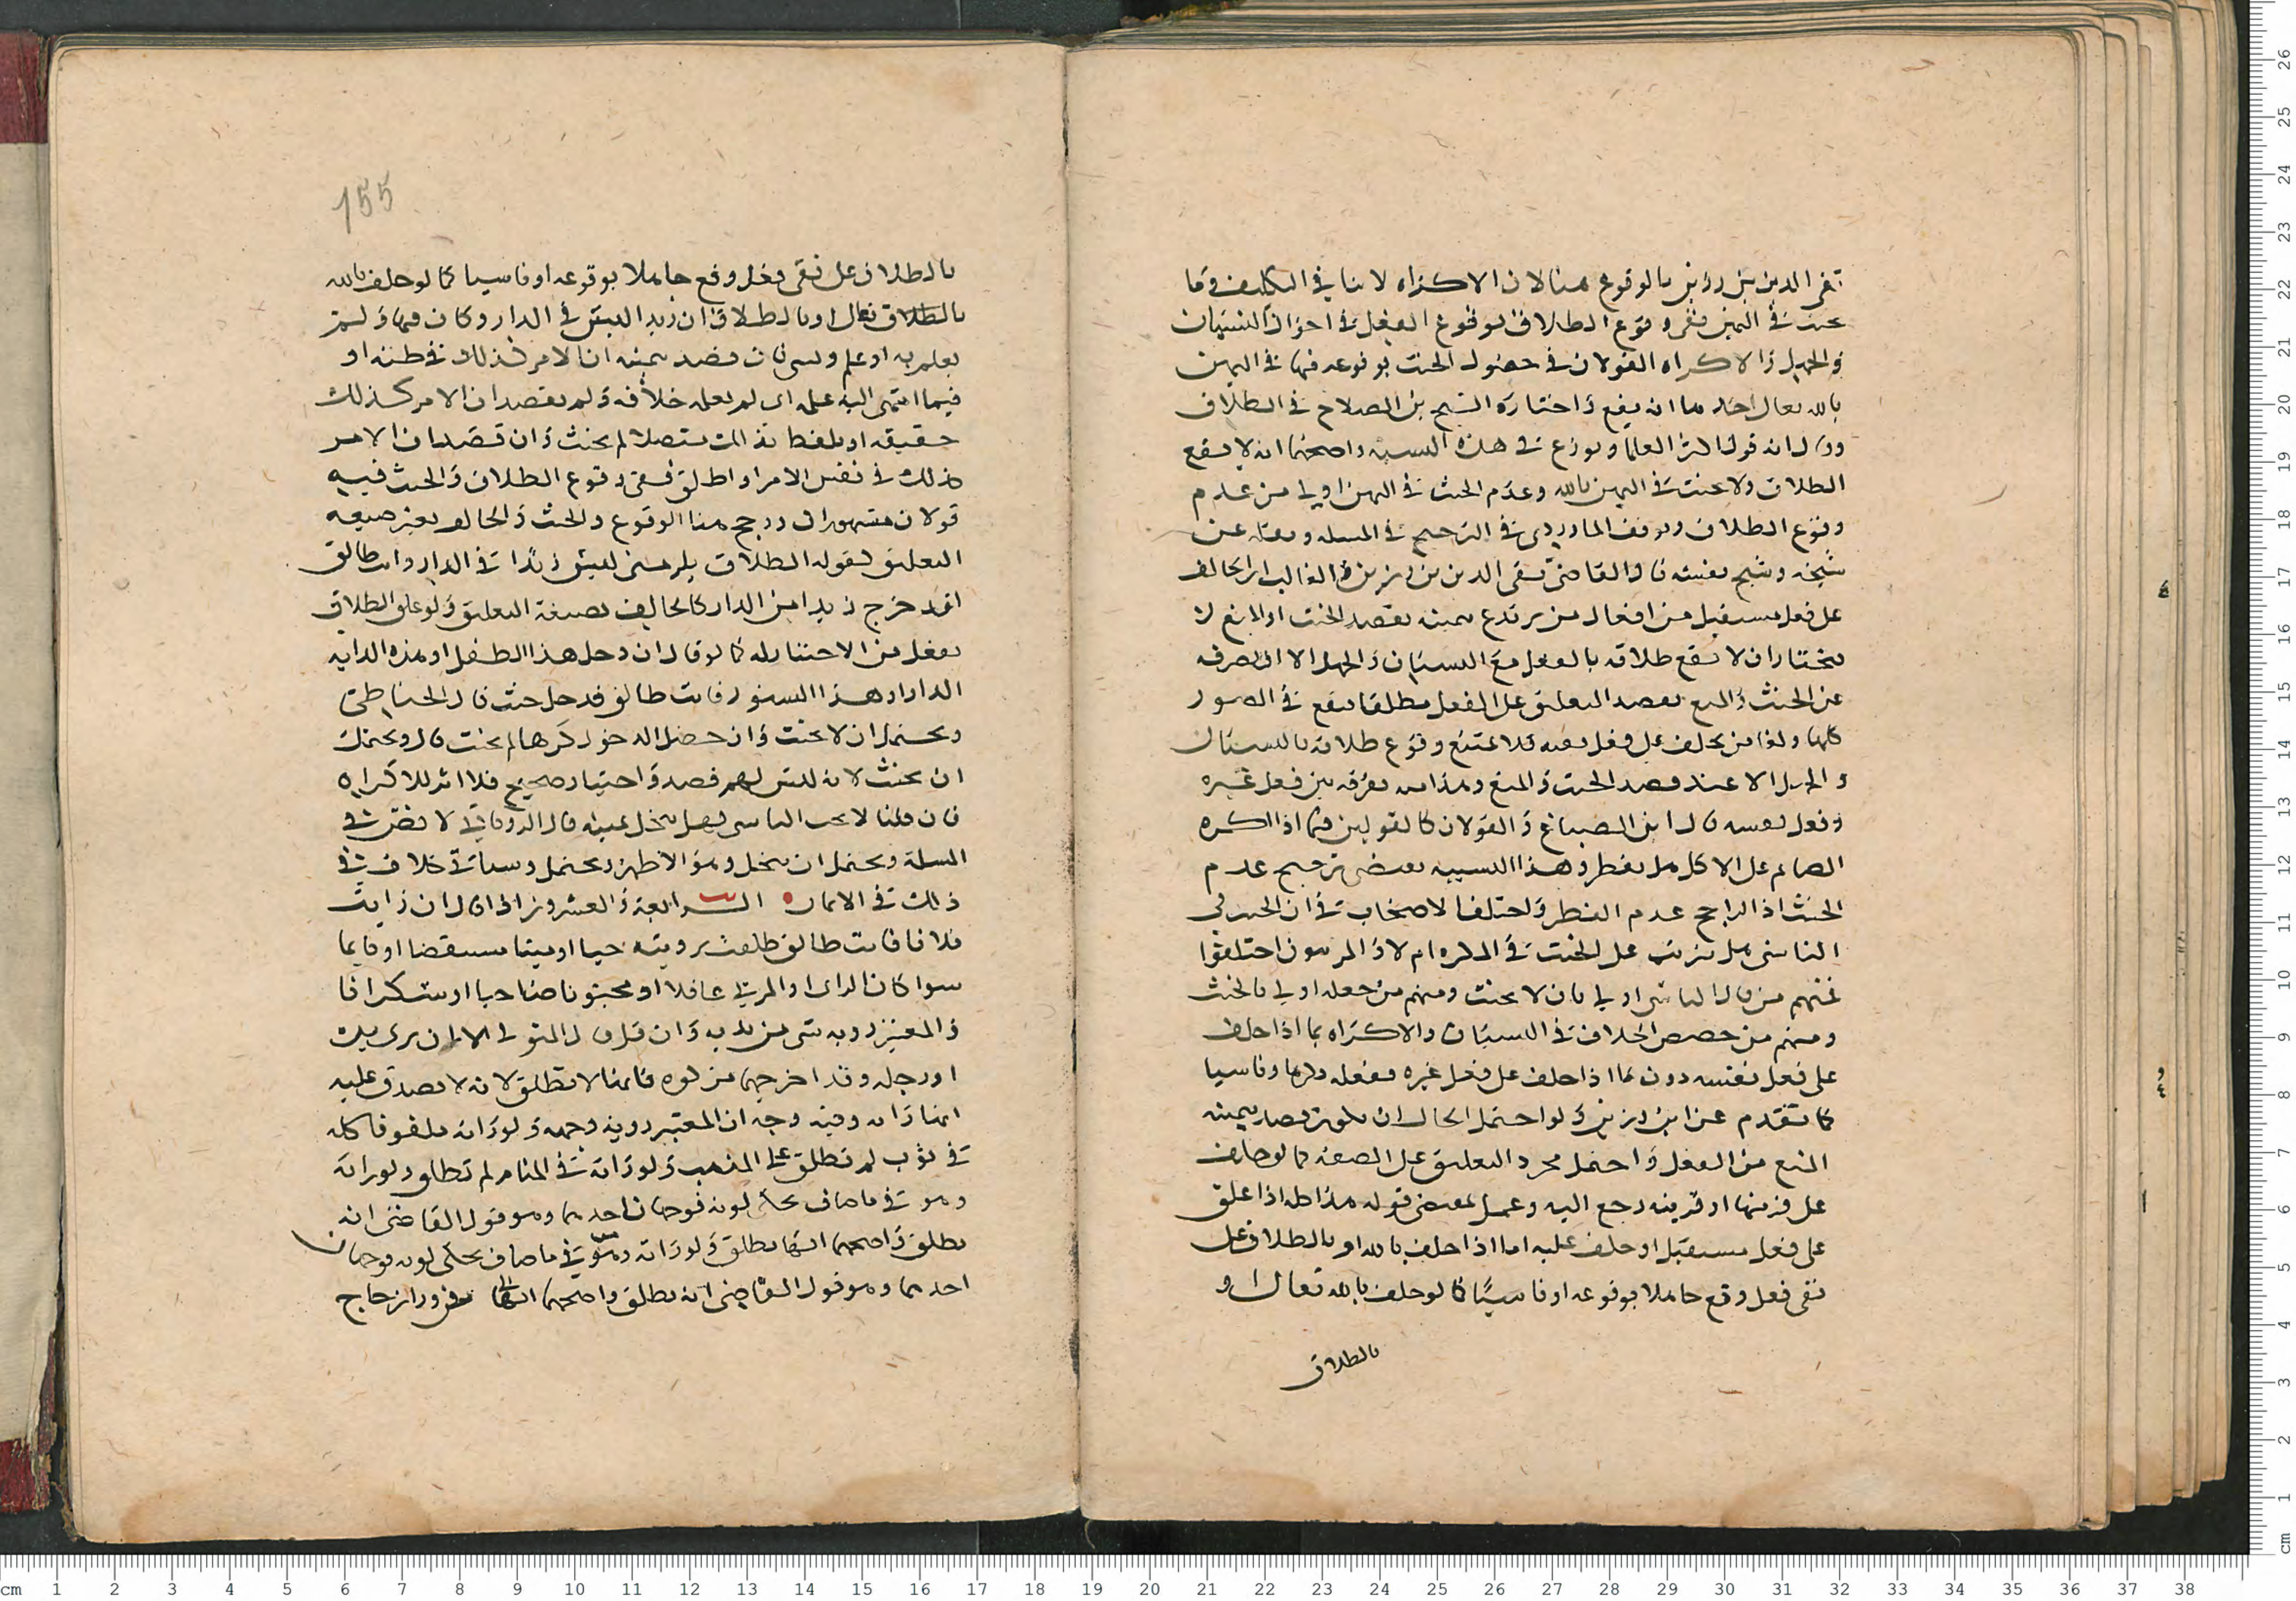 تقي الدين بن رزين بالوقوع هنا لان الاكراه لا ينافي التكليف وما
حنث في اليمين نفي وقوع الطلاق بوقوع الفعل في احوال النسيان
والجهل والاكراه القولان في حصول الحنث بوقوعه فيها في اليمين
بالله تعالى احدهما انه يقع واختاره الشيخ بن الصلاح في الطلاق
وقال انه قول اكثر العلما ونوزع في هذه النسبة واصحهما انه لا يقع
الطلاق ولا حنث في اليمين بالله وعدم الحنث في اليمين اولى من عدم
وقوع الطلاق وتوقف الماوردي في الترجيح في المسله ونقله عن
شيخه وشيخ نفسه قال القاضي تقي الدين بن رزين في الغالب ان الحالف
على فعل مستقبل من افعال من يرتدع بيمينه يقصد الحث او المنع لا
يختار ان لا يقع طلاقه بالفعل مع النسيان والجهل الا ان يصرفه
عن الحث والمنع بقصد التعليق على الفعل مطلقا فيقع في الصور
كلها ولذا من يحلف على فعل نفسه فلا يمتنع وقوع طلاقه بالنسيان
والجهل الا عند قصد الحث والمنع وهذا منه تفرقه بين فعل غيره
وفعل نفسه قال ابن الصباغ والقولان كالقولين فيما اذا اكره
الصائم على الاكل هل يفطر وهذا التشبيه يقتضي ترجيح عدم
الحنث اذ الراجح عدم الفطر واختلف الاصحاب في ان الحنث في
الناسي هل يترتب على الحنث في المكره ام لا والمرتبون اختلفوا
فمنهم من قال الناسي اولى بان لا يحنث ومنهم من جعله اولى بالحنث
ومنهم من خصص الخلاف في النسيان والاكراه بما اذا حلف
على فعل نفسه دون ما اذا حلف على فعل غيره ففعله مكرها وناسيا
كما تقدم عن ابن رزين ولو احتمل الحال ان يكون قصد بيمينه
المنع من الفعل واحتمل مجرد التعليق على الصفه كما لو حلف
على قرينها او قرينه رجع اليه وعمل بمقتضى قوله هذا كله اذا علق
على فعل مستقبل او حلف عليه اما اذا حلف بالله او بالطلاق على
نفي فعل وقع جاهلا بوقوعه او ناسيا كما لو حلف بالله تعالى او
بالطلاق
155
بالطلاق على نفي فعل وقع جاهلا بوقوعه او ناسيا كما لو حلف بالله
بالطلاق تعالى او بالطلاق ان زيدا ليس في الدار وكان فيها ولم
يعلم به او علم ونسي فان قصد بيمينه ان الامر كذلك في ظنه او
فيما انتهى اليه علمه اي لم يعلم خلافه ولم يقصد ان الامر كذلك
حقيقه او تلفظ بذلك متصلا لم يحنث وان قصد ان الامر
كذلك في نفس الامر او اطلق ففي وقوع الطلاق والحنث فيه
قولان مشهوران ورجح هنا الوقوع والحنث والحالف بغير صيغه
التعليق كقوله الطلاق يلزمني ليس زيدا في الدار وانت طالق
لقد خرج زيد من الدار كالحالف بصيغة التعليق ولو علق الطلاق
بفعل من الاحتيال له كما لو قال ان دخل هذا الطفل او هذه الدابه
الدار او هذا السنور فانت طالق فدخل حنث قال الحناطي
ويحتمل ان لا يحنث وان حصل الدخول كرها لم يحنث قال ويحتمل
ان يحنث لانه ليس لهم قصد واختيار صحيح فلا اثر للاكراه
فان قلنا لا يحنث الناسي فهل تنحل يمينه قال الروياني لا نص في
المسلة ويحتمل ان تنحل وهو الاظهر ويحتمل وسياتي خلاف في
ذلك في الايمان ٥ السـابعة والعشرون اذا قال ان رايت
فلانا فانت طالق طلقت برويته حيا او ميتا مستيقضا او نايما
سوا كان الراي او المرئي عاقلا او مجنونا صاحيا او سكرانا
والمعتبر روية شي من بدنه وان قل قال المتولي الا ان يرى يده
او رجله وقد اخرجهما من كوه فانها لا تطلق لانه لا يصدق عليه
انها راته وفيه وجه ان المعتبر روية وجهه ولو راته ملفوفا كله
في ثوب لم تطلق على المذهب ولو راته في المنام لم تطلق ولو راته
وهو في ما صاف يحكي لونه فوجهان احدهما وهو قول القاضي انه
تطلق واصحهما انها تطلق ولو راته وهو في ما صاف يحكي لونه فوجهان
احدهما وهو قول القاضي انه تطلق واصحهما انها من ورا زجاج